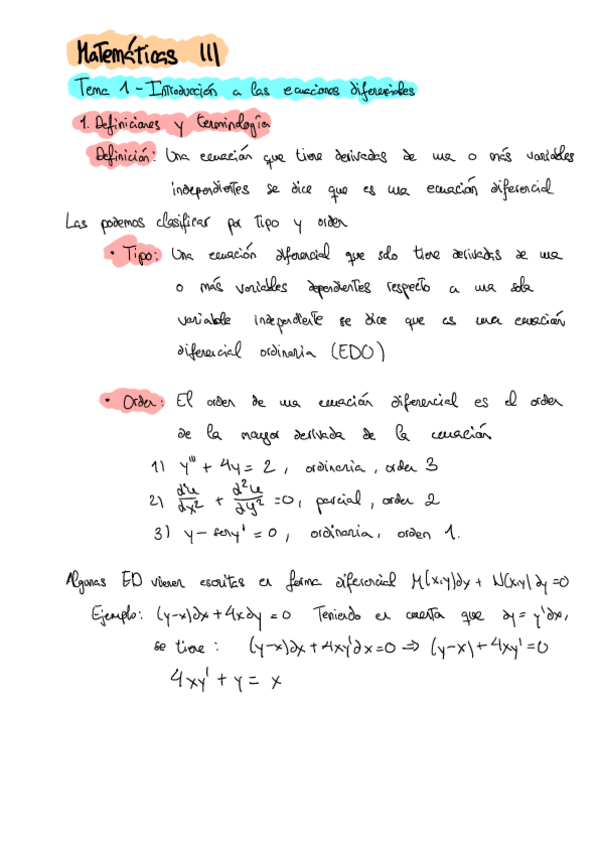 Matemáticas III
Tema 1 - Introducción a las ecuaciones diferenciales
1. Definiciones y terminología
Definición: Una ecuación que tiene derivadas de una o más variables
independientes se dice que es una ecuación diferencial
Las podemos clasificar por tipo y orden
• Tipo: Una ecuación diferencial que solo tiene derivadas de una
o más variables dependientes respecto a una sola
variable independiente se dice que es una ecuación
diferencial ordinaria (EDO)
• Orden: El orden de una ecuación diferencial es el orden
de la mayor derivada de la ecuación
1) y''' + 4y = 2, ordinaria, orden 3
2) ∂²u/∂x² + ∂²u/∂y² = 0, parcial, orden 2
3) y - sen y' = 0, ordinaria, orden 1.
Algunas ED vienen escritas en forma diferencial M(x,y)∂x + N(x,y)∂y = 0
Ejemplo: (y-x)∂x + 4x∂y = 0 Teniendo en cuenta que ∂y = y'∂x,
se tiene: (y-x)∂x + 4xy'∂x = 0 ⇒ (y-x) + 4xy' = 0
4xy' + y = x